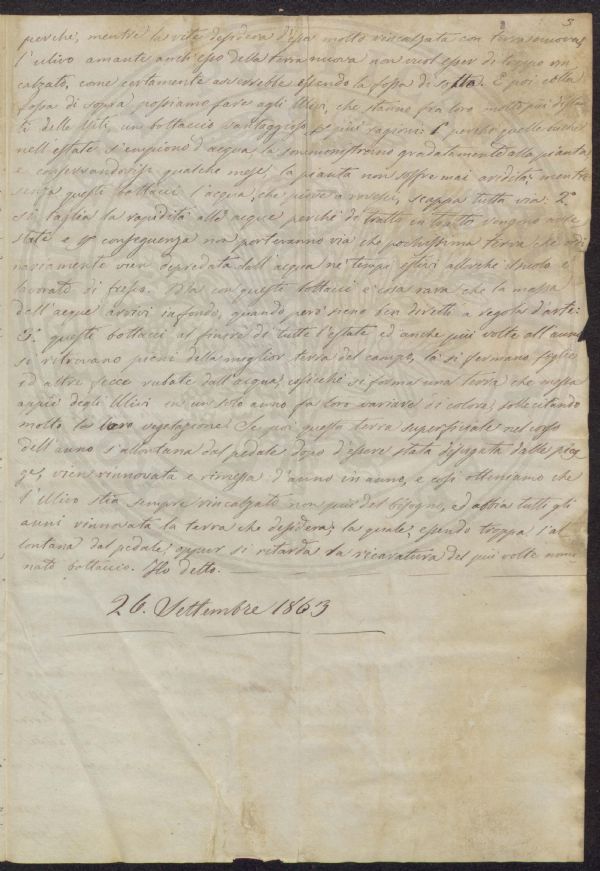 3
perchè, mentre la vite desidera d'esser molto rincalzata con terra nuova,
l'ulivo amante anch'esso della terra nuova non vuol esser di troppo rin
calzato, come certamente avverrebbe essendo la fossa di sotto. E poi colla
fossa di sopra possiamo fare agli Ulivi, che stanno fra loro molto più distan
ti delle viti, un bottaccio vantaggioso per più ragioni: 1° perchè quelle buche
nell'estate s'empiono d'acqua, la somministrano gradatamente alla pianta
e conservandosi qualche mese, la pianta non soffre mai aridità, mentre
senza questi bottacci l'acqua, che piove a rovesci, scappa tutta via. 2.°
si taglia la rapidità alle acque perchè di tratto in tratto vengono arre
state e p conseguenza non porteranno via che pochissima terra che ordi
nariamente vien depredata dall'acqua ne' tempi estivi allorchè il suolo è
lavorato di fresco. Ma con questi bottacci è cosa rara che la massa
dell'acque arrivi in fondo, quando però sieno ben diretti a regola d'arte:
3.° questi bottacci al finire di tutte l'estate ed anche più volte all'anno
si ritrovano pieni della miglior terra del campo, là si fermano foglie
ed altre fecce rubate dall'acqua, cosicchè si forma una terra che messa
appiè degli Ulivi in un solo anno fa loro variare di colore, sollecitando
molto la loro vegetazione. Se poi questa terra superficiale nel corso
dell'anno s'allontana dal pedale dopo d'essere stata disugata dalle piog
ge, vien rinnovata e rimessa d'anno in anno, e così otteniamo che
l'Ulivo stia sempre rincalzato non più del bisogno, ed abbia tutti gli
anni rinnovata la terra che desidera; la quale, essendo troppa s'al
lontana dal pedale, oppur si ritarda la ricavatura del più volte nomi
nato bottaccio. Ho detto.
26. Settembre 1863